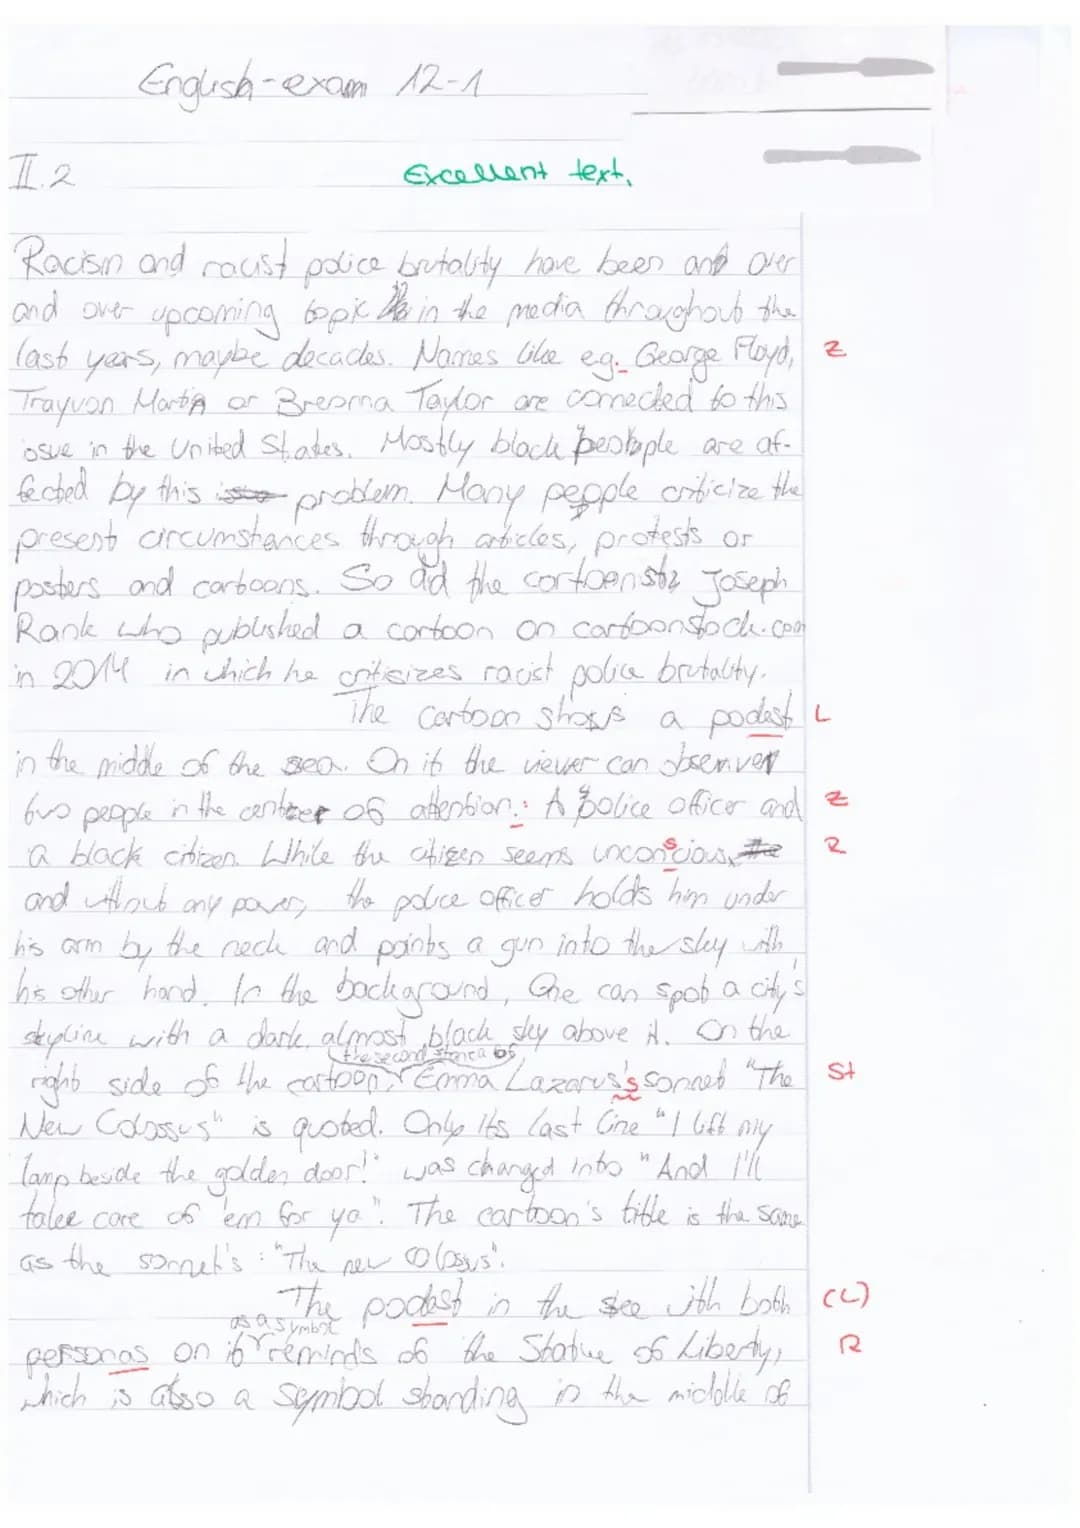 English-exam 12-1
II.2
Excellent text.
Racism and racist police brutality have been and over
and over upcoming topic in the media throughout the
last years, maybe decades. Names like e.g. George Floyd, Z
Trayvon Martin or Breonna Taylor are connected to this
issue in the United States. Mostly black people are af-
fected by this problem. Many people criticize the
present circumstances through articles, protests or
posters and cartoons. So did the cartoonist Joseph
Rank who published a cartoon on cartoonstock.com
in 2014 in which he critisizes racist police brutality.
The cartoon shows a podest L
in the middle of the sea. On it the viewer can
two people in the center of attention.: A police officer and Z
a black citizen. While the citizen seems unconscious, R
and without any power, the police officer holds him under
his arm by the neck and points a gun into the sky with
his other hand. In the background, One can spot a city's
skyline with a dark, almost black sky above it. On the
the second stanza of
right side of the cartoon, Emma Lazarus's sonnet "The St
New Colossus" is quoted. Only its last line "I lift my
lamp beside the golden door!" was changed into "And I'll
take care of 'em for ya". The cartoon's title is the same
as the sonnet's: "The new Colossus".
The podest in the see with both (L)
as a symbol
personas on it reminds of the Statue of Liberty, R
which is also a symbol standing in the middle of